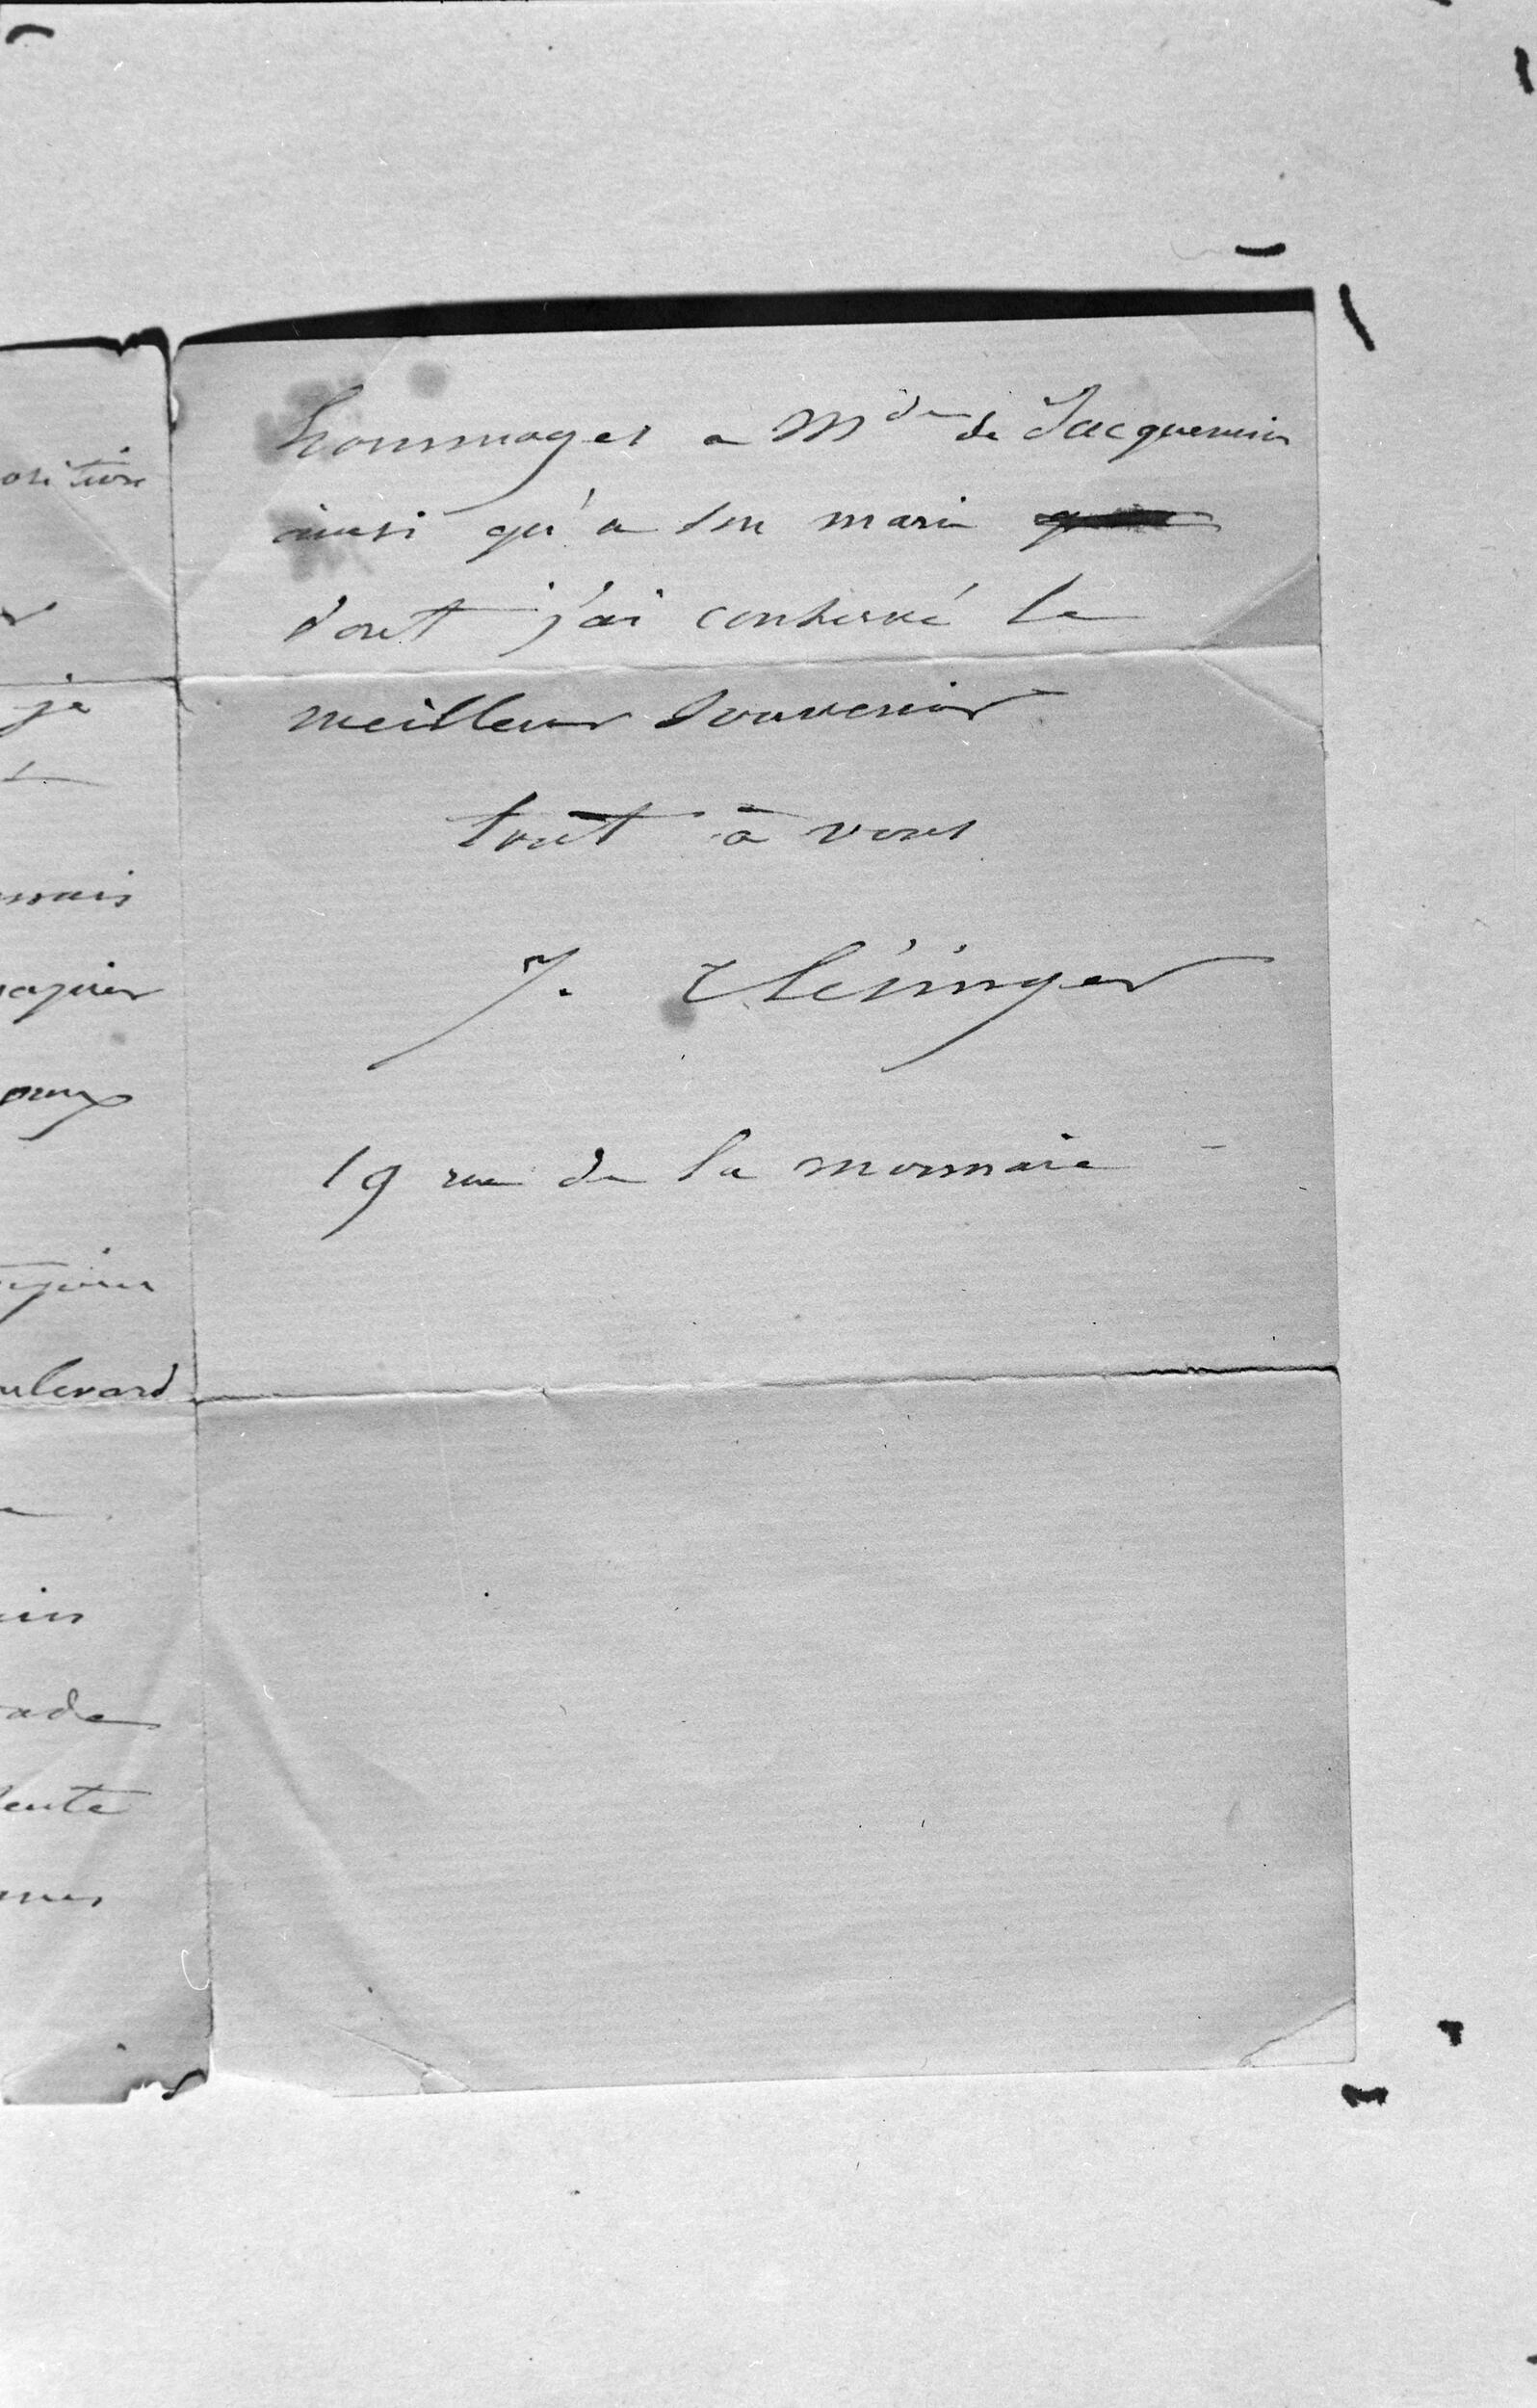 osition
je
mais
papier
peux
papier
oulevard
ade
tente
mes
hommages a Mde de Jacquemin
ainsi qu'a son mari
dont j'ai conservé le
meilleur souvenir
tout à vous
J.
19 rue de la monnaie